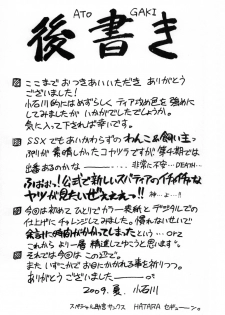 ATO GAKI
後書き
ここまでおつきあいいただき ありがとう
ございました!
小石川的にはめずらしく ティア攻め色を強めに
してみましたが いかがでしたでしょうか。
気に入って下されば幸いです。
SSXでもあいかわらずの わんこ&飼い主っ
ぷりが素晴しかったコカツラですが 第4期では
出番あるのかな ………非常に不安…DEATH…
公式で新しいスパティアのイチャイチャな
ヤツが見たいぜぇぇぇっ!!
今回は初めてひとりでカラー表紙とデジタルでの
仕上げにチャレンジしてみました。慣れないせいで
余計に時間がかかってしまった という…orz
これから より一層 精進してゆこうと思います。
それでは今回はこの辺で。
また いずこかでお目にかかれる事を祈りつつ。
ありがとうございましたーーー。
2009.夏. 小石川
スペシャル助言サンクス HATARA セギューーン。